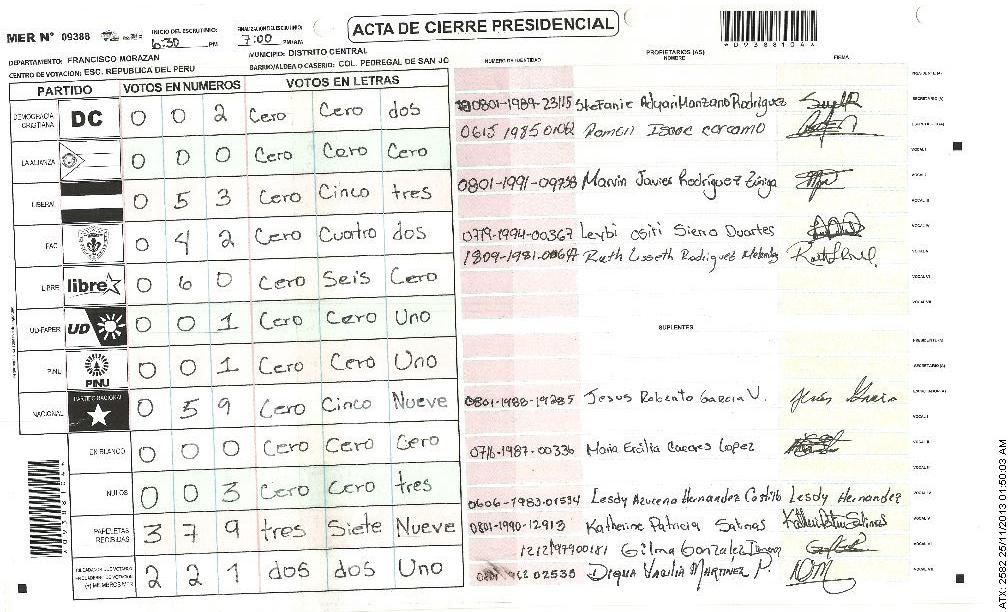 ACTA DE CIERRE PRESIDENCIAL
MER N° 09388
INICIO DEL ESCRUTINIO: 6:30 PM
FINALIZACION DEL ESCRUTINIO: 7:00 PM/AM
*D9388106*
DEPARTAMENTO: FRANCISCO MORAZAN
MUNICIPIO: DISTRITO CENTRAL
CENTRO DE VOTACION: ESC. REPUBLICA DEL PERU
BARRIO/ALDEA O CASERIO: COL. PEDREGAL DE SAN JO
NUMERO DE IDENTIDAD
PROPIETARIOS (AS)
NOMBRE
FIRMA
PARTIDO VOTOS EN NUMEROS VOTOS EN LETRAS
DEMOCRACIA CRISTIANA DC 0 0 2 Cero Cero dos
LA ALIANZA 0 0 0 Cero Cero Cero
LIBERAL 0 5 3 Cero Cinco tres
PAC 0 4 2 Cero Cuatro dos
LIBRE libre 0 6 0 Cero Seis Cero
UD-FAPER UD 0 0 1 Cero Cero Uno
PINU PINU 0 0 1 Cero Cero Uno
NACIONAL PARTIDO NACIONAL 0 5 9 Cero Cinco Nueve
EN BLANCO 0 0 0 Cero Cero Cero
NULOS 0 0 3 Cero Cero tres
PAPELETAS RECIBIDAS 3 7 9 tres Siete Nueve
2 2 1 dos dos Uno
0801-1989-23115 Stefanie Adyari Manzano Rodriguez
Ramon Isaac carcamo
0801-1991-09758 Marvin Javier Rodríguez Zúniga
0719-1994-00367 Leybi Ositi Sierra Duartes
Ruth Lisseth Rodriguez
SUPLENTES
0801-1988-19285 Jesus Roberto Garcia V.
0716-1987-00336 Maria Ercilia Caceres Lopez
0606-1983-01534 Lesdy Azucena Hernandez Castillo Lesdy Hernandez
0801-1990-12913 Katherine Patricia Salinas
1212197900181 Gilma Gonzalez
Martinez P.
PRESIDENTE (A)
SECRETARIO (A)
ESCRUTADOR (A)
VOCAL I
VOCAL II
VOCAL III
VOCAL IV
VOCAL V
VOCAL VI
VOCAL VII
PRESIDENTE (A)
SECRETARIO (A)
ESCRUTADOR (A)
VOCAL I
VOCAL II
VOCAL III
VOCAL IV
VOCAL V
VOCAL VI
VOCAL VII
ATX: 2582 25/11/2013 01:50:03 AM